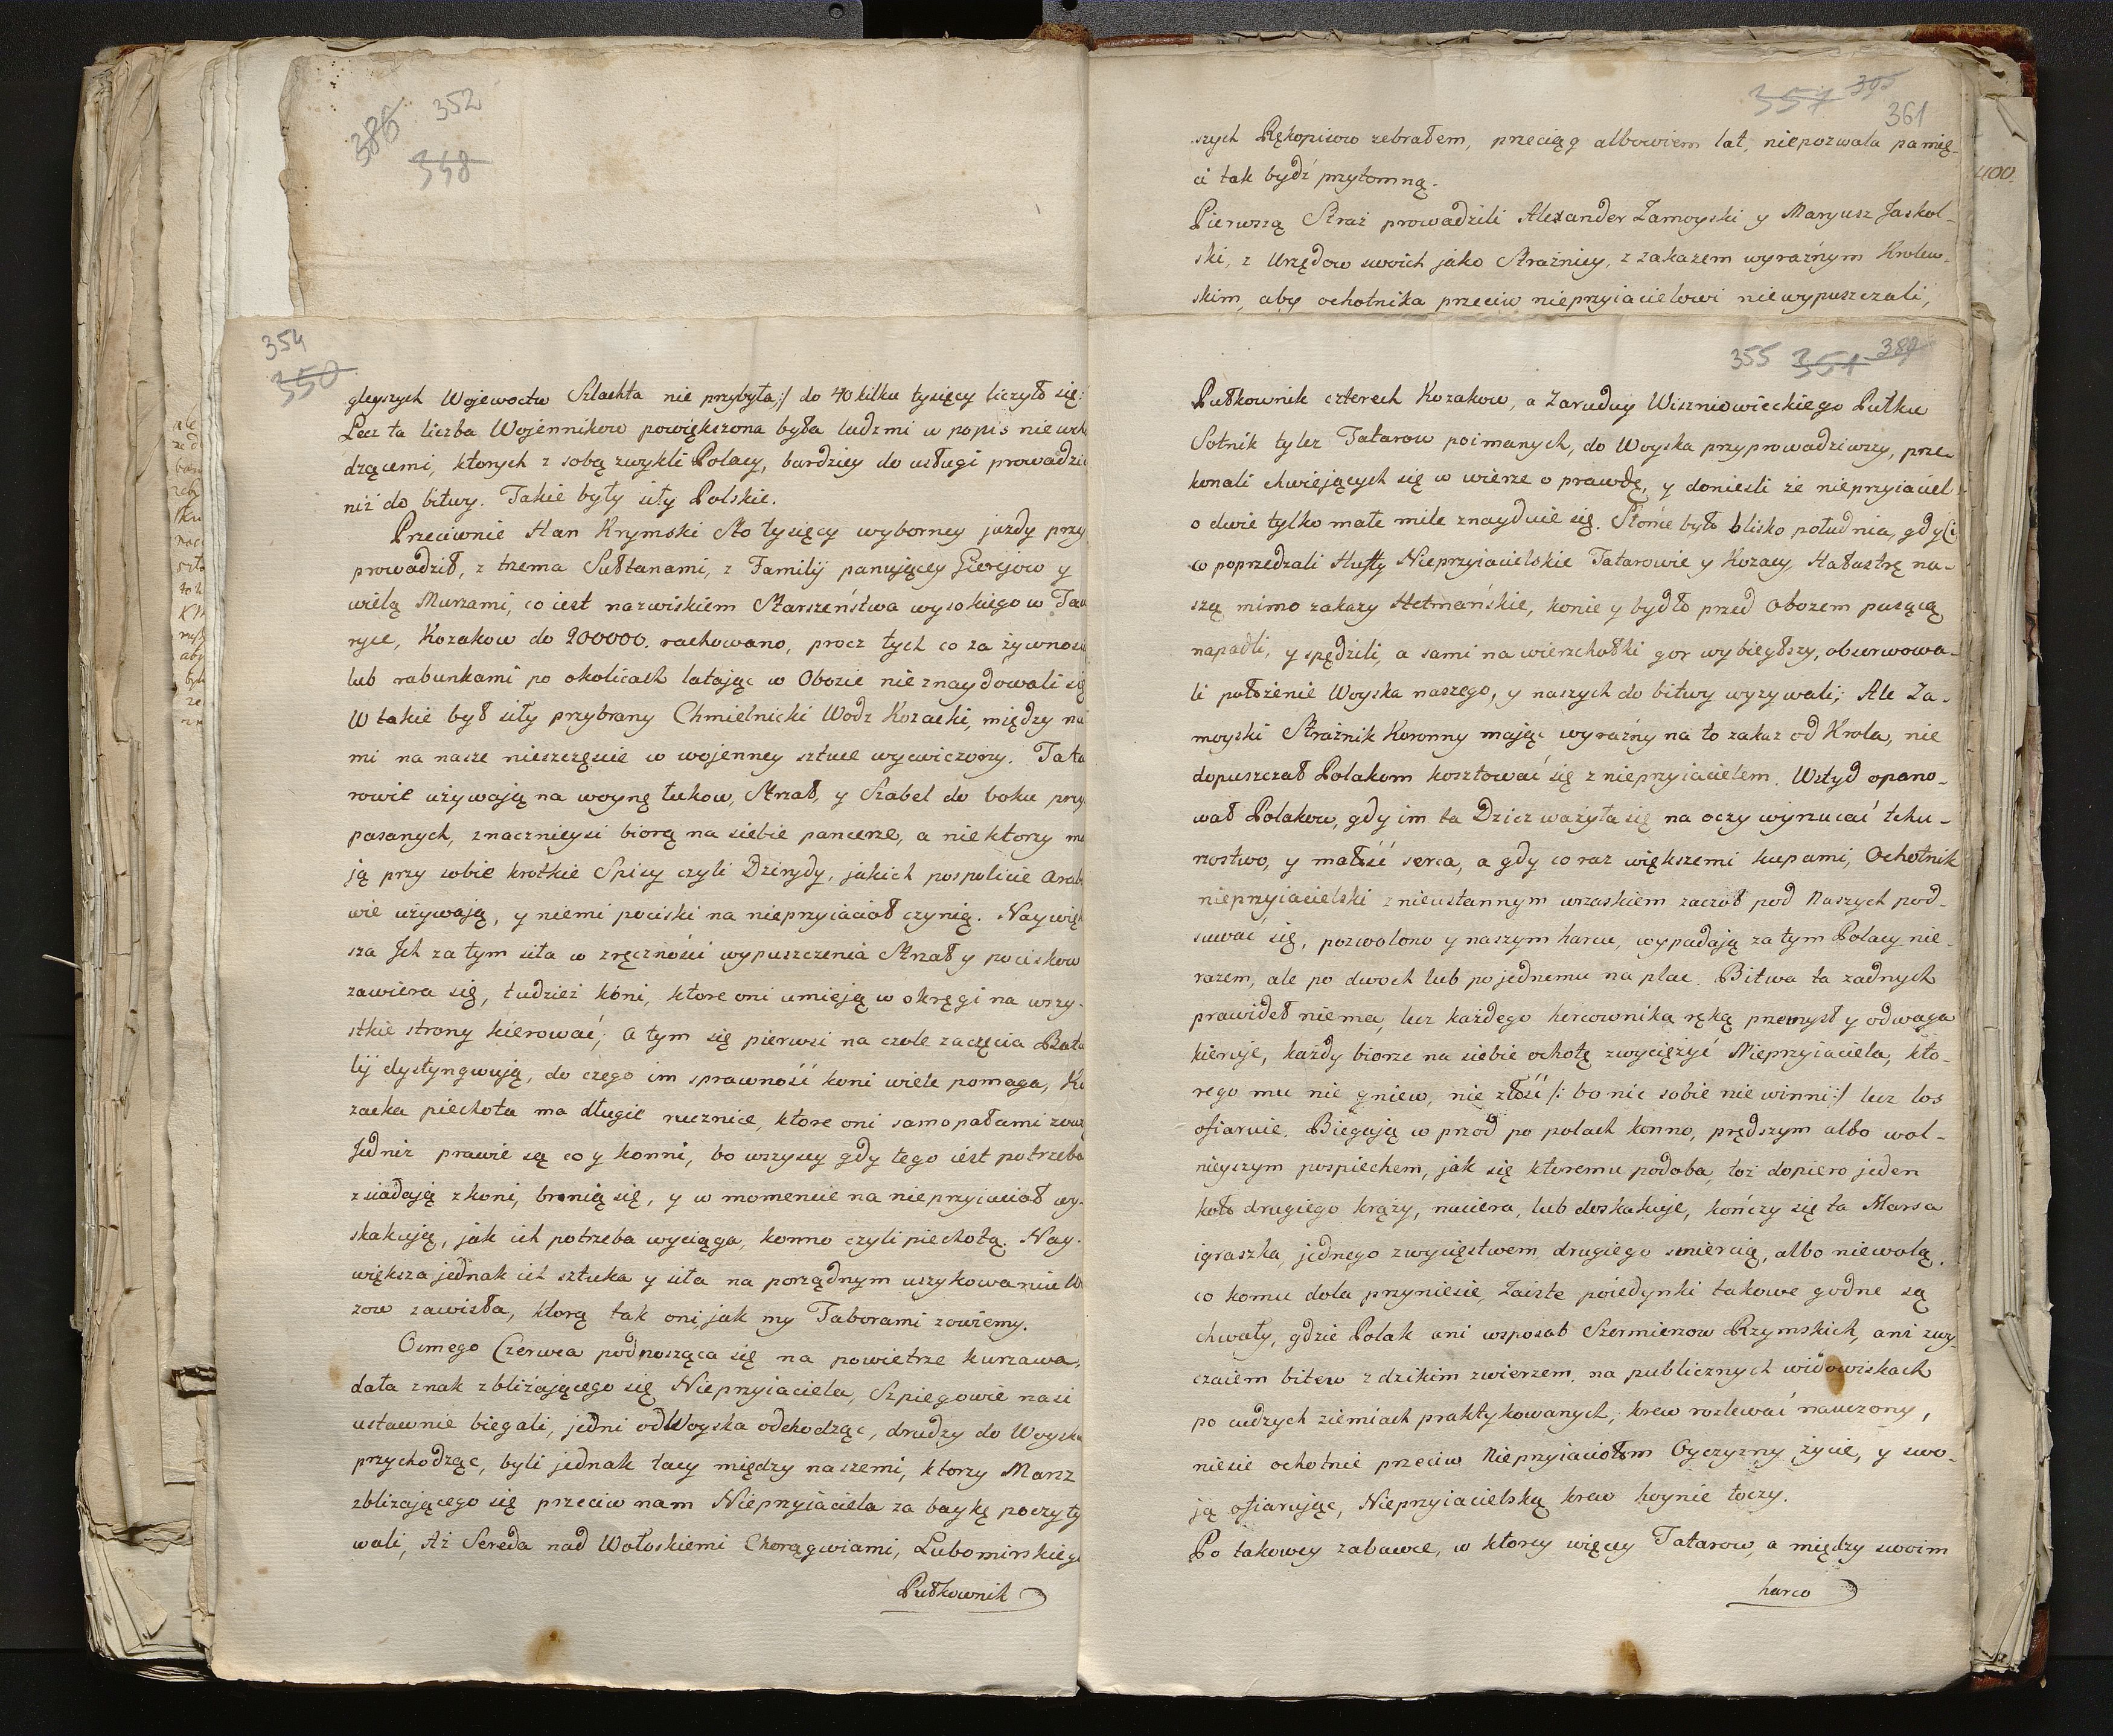 386 352
348
354
350
gleyszych Wojewoctw Szlachta nie przybyła:/ do 40 kilku tysięcy liczyło się:
Lecz ta liczba Wojennikow powiększona była ludzmi w popis nie
dzącemi, ktorych z sobą zwykli Polacy, bardziey do usługi prowadzi
niż do bitwy. Takie były siły Polskie.
Przeciwnie Han Krymski Sto tysięcy wyborney jazdy przy
prowadził, z trzema Sułtanami, z Familij panującey Gierejow y
wielą Murzami, co iest nazwiskiem Starszeństwa wysokiego w Tau
ryce, Kozakow do 200000. rachowano, procz tych co za żywnosc
lub rabunkami po okolicach latając w Obozie nie znaydowali się
W takie był siły przybrany Chmielnicki Wodz Kozacki, między na
mi na nasze nieszczęscie w wojenney sztuce wycwiczony. Tata
rowie używają na woynę łukow, Strzał, y Szabel do boku przy
pasanych, znacznieysi biorą na siebie pancerze, a niektorzy ma
ją przy sobie krotkie Spisy czyli Dzirydy, jakich pospolicie Arab
wie używają, y niemi pociski na nieprzyiacioł czynią. Naywięk
sza Jch za tym siła w zręczności wypuszczenia Strzał y pociskow
zawiera się, tudzież koni, ktore oni umieją w okręgi na wszy-
stkie strony kierować; a tym się pierwsi na czele zaczęcia Bata
lij dystyngwują, do czego im sprawność koni wiele pomaga, Ko
zacka piechota ma długie rucznice, ktore oni samopałami zową
Jedniż prawie są co y konni, bo wszyscy gdy tego iest potrzeba
zsiadają z koni, bronią się, y w momencie na nieprzyiacioł wy-
skakują, jak ich potrzeba wyciąga, konno czyli piechotą. Nay-
większa jednak ich sztuka y siła na porządnym uszykowaniu Wo
zow zawisła, ktorą tak oni, jak my Taborami zowiemy.
Osmego Czerwca podnosząca się na powietrze kurzawa,
dała znak zbliżającego się Nieprzyiaciela, Szpiegowie nasi
ustawnie biegali, jedni od Woyska odchodząc, drudzy do Woyska
przychodząc, byli jednak tacy między naszemi, ktorzy Marsz
zbliżającego się przeciw nam Nieprzyjaciela za baykę poczyty
wali, Aż Sereda nad Wołoskiemi Chorągwiami, Lubomirskiego
Pułkownik
357 395
361
szych Rękopisow zebrałem, przeciąg albowiem lat, niepozwala pamię-
ci tak bydź przytomną.
Pierwszą Straż prowadzili Alexander Zamoyski y Maryusz Jaskol-
ski, z Urzędow swoich jako Strażnicy, z zakazem wyraźnym Krolew-
skim, aby ochotnika przeciw nieprzyiacielowi niewypuszczali,
400.
355 351 389
Pułkownik czterech Kozakow, a Zarudny Wiszniowieckiego Pułku
Sotnik tylez Tatarow poimanych, do Woyska przyprowadziwszy, prze-
konali chwiejących się w wierze o prawdę, y doniesli że nieprzyiaciel
o dwie tylko małe mile znayduie się. Słońce było blisko południa, gdy ci
co poprzedzali Hufty Nieprzyiacielskie Tatarowie y Kozacy, Hałastrę na-
szą mimo zakazy Hetmańskie, konie y bydło przed Obozem pasącą
napadli, y spędzili, a sami na wierzchołki gor wybiegłszy, obserwowa-
li położenie Woyska naszego, y naszych do bitwy wyzywali; Ale Za-
moyski Strażnik Koronny mając wyraźny na to zakaz od Krola, nie
dopuszczał Polakom kosztować się z nieprzyiacielem. Wstyd opano-
wał Polakow, gdy im ta Dzicz ważyła się na oczy wyrzucać tchu-
rzostwo, y małość serca, a gdy co raz większemi kupami, Ochotnik
nieprzyiacielski z nieustannym wrzaskiem zaczoł pod Naszych pod-
suwać się, pozwolono y naszym harcu, wypadają za tym Polacy nie-
razem, ale po dwoch lub po jednemu na plac. Bitwa ta zadnych
prawideł niema, lecz każdego hercownika ręką przemysł y odwaga
kieruje, każdy bierze na siebie ochotę zwyciężyć Nieprzyiaciela, kto-
rego mu nie gniew, nie złość /: bo nic sobie nie winni :/ lecz los
ofiaruie. Biegają w przod po polach konno, prędszym albo wol-
nieyszym pospiechem, jak się ktoremu podoba, toż dopiero jeden
koło drugiego krąży, naciera, lub doskakuje, kończy się ta Marsa
igraszka, jednego zwycięstwem, drugiego smiercią, albo niewolą.
co komu dola przyniesie, Zaiste poiedynki takowe godne są
chwały, gdzie Polak ani wsposob Szermierzow Rzymskich, ani zwy-
czaiem bitew z dzikim zwierzem, na publicznych widowiskach
po cudzych ziemiach praktykowanych, krew rozlewać nauczony,
niesie ochotnie przeciw Nieprzyiaciołom Oyczyzny życie, y swo-
ją ofiarując, Nieprzyiacielską krew hoynie toczy.
Po takowey zabawce, w ktorey więcey Tatarow, a między swoim
harco